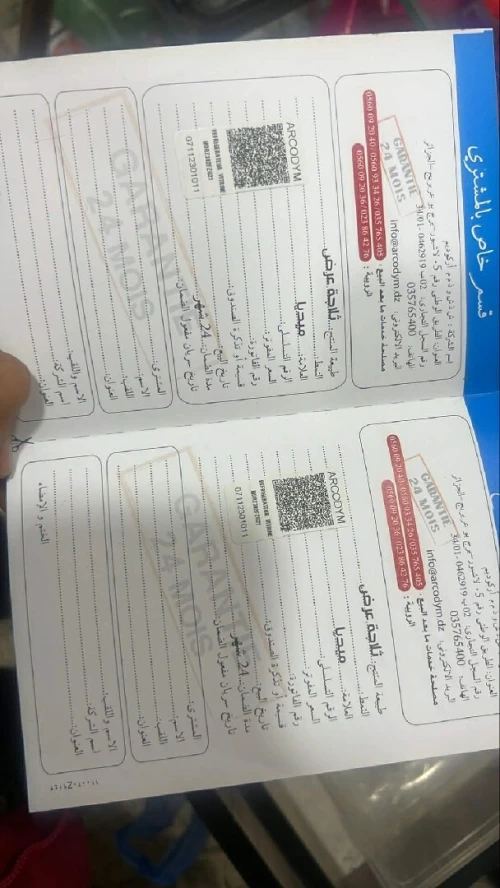 قسم خاص بالمشتري
اسم الشركة : ش ذ ش و ذ م م أركوديم
العنوان: الطريق الوطني رقم 5، لاشبور، برج بوعريريج-الجزائر
رقم السجل التجاري: 02ب 0462919-34/01
الهاتف: 035765400
البريد الالكتروني: info@arcodym.dz
مصلحة خدمات ما بعد البيع :
0560 09 20 40 / 0560 93 34 26 / 035 765 405
الرويبة :
0560 09 20 36 / 023 86 42 76
GARANTIE
24 MOIS
طبيعة المنتج: ثلاجة عرض
النمط
العلامة: ميديا
الرقم التسلسلي
السعر المفوتر
رقم الفاتورة:
قسيمة أو تذكرة الصندوق:
تاريخ البيع
مدة الضمان: 24 شهر
تاريخ سريان مفعول الضمان
ARCODYM
REFRIGERATEUR VITRINE
07112301011
المشتري
الاسم
اللقب:
العنوان:
GARANTIE
24 MOIS
الاسم واللقب:
اسم الشركة:
العنوان:
العنوان: الطريق الوطني رقم 5، لاشبور، برج بوعريريج-الجزائر
رقم السجل التجاري: 02ب 0462919-34/01
الهاتف: 035765400
البريد الالكتروني: info@arcodym.dz
مصلحة خدمات ما بعد البيع :
0560 09 20 40 / 0560 93 34 26 / 035 765 405
الرويبة :
0560 09 20 36 / 023 86 42 76
GARANTIE
24 MOIS
طبيعة المنتج: ثلاجة عرض
النمط
العلامة: ميديا
الرقم التسلسلي
السعر المفوتر
رقم الفاتورة:
قسيمة أو تذكرة الصندوق:
تاريخ البيع
مدة الضمان: 24 شهر
تاريخ سريان مفعول الضمان
ARCODYM
REFRIGERATEUR VITRINE
07112301011
المشتري
الاسم
اللقب:
العنوان:
GARANTIE
24 MOIS
الاسم واللقب:
اسم الشركة:
العنوان:
الختم و الإمضاء